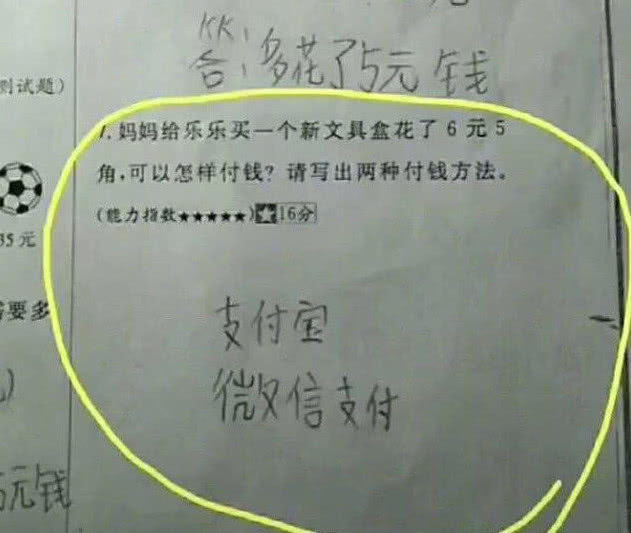 答:多花了5元钱
测试题)
7.妈妈给乐乐买一个新文具盒花了 6 元 5
角,可以怎样付钱?请写出两种付钱方法。
(能力指数★★★★★)★16分
35元
需要多
支付宝
微信支付
5元钱